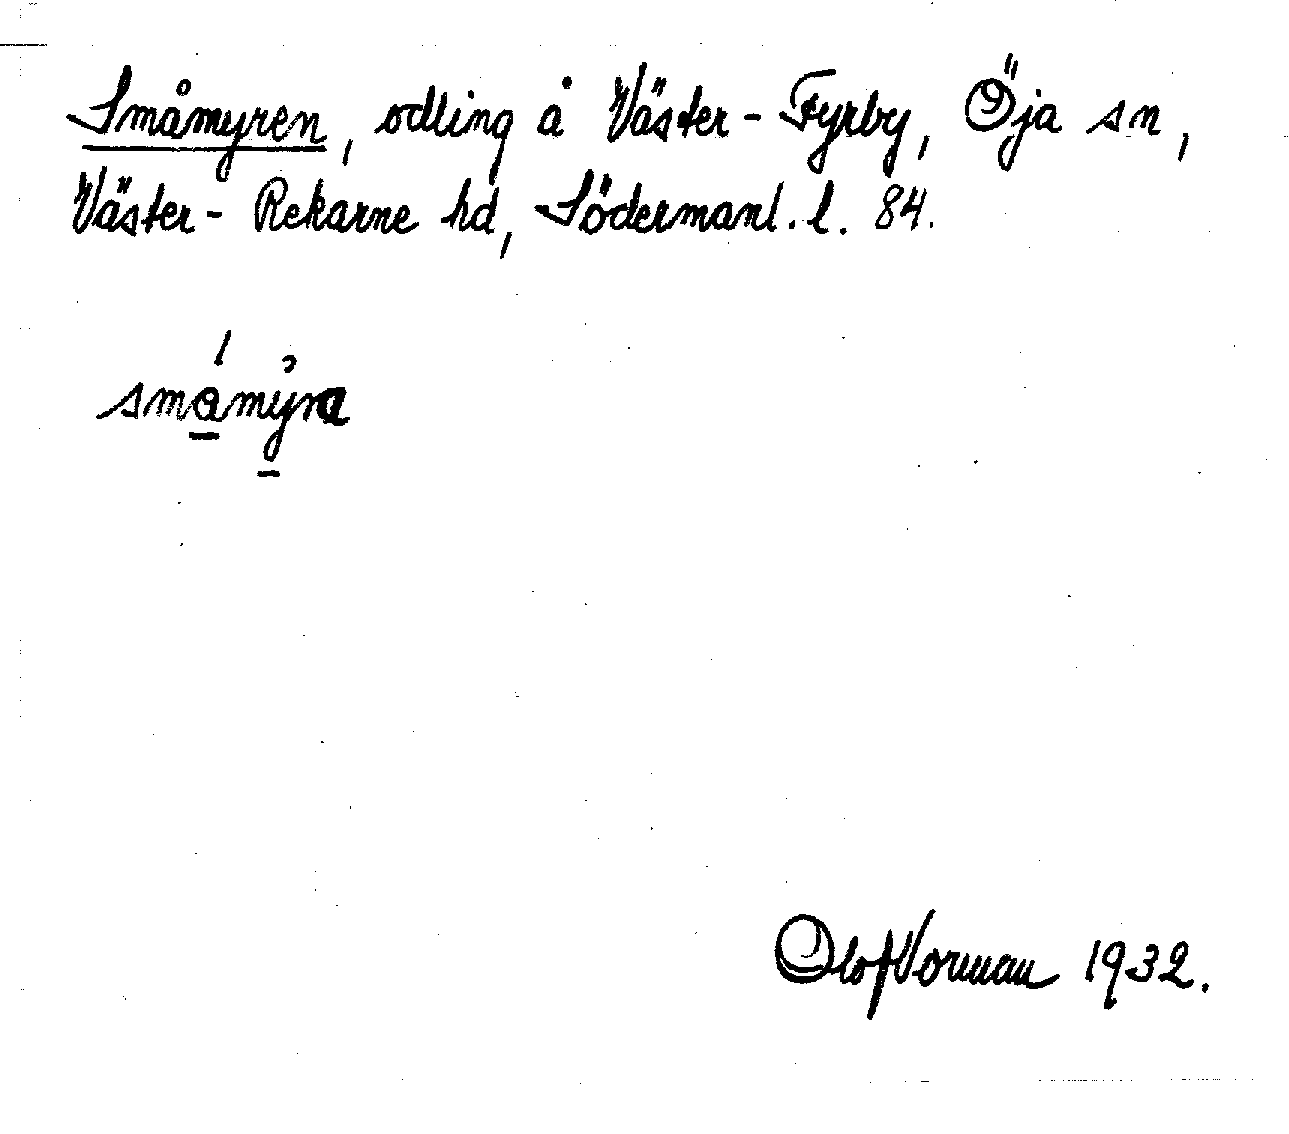 Småmyren, odling å Väster-Fyrby, Öja sn,
Väster-Rekarne hd, Södermanl. l. 84.
småmyra
Olof Vorman 1932.